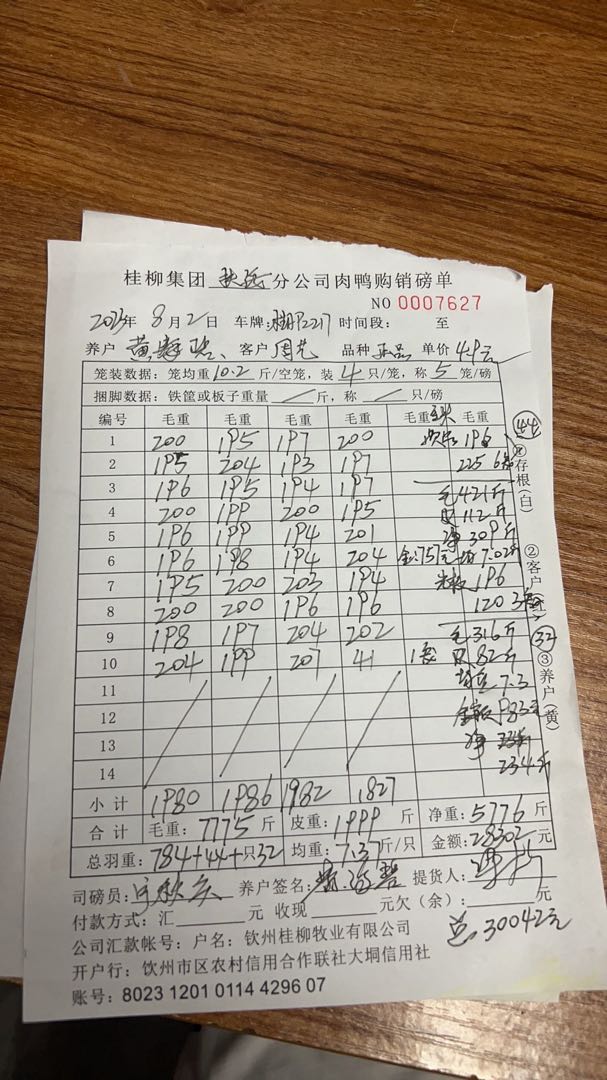 桂柳集团 分公司肉鸭购销磅单
NO 0007627
年 8 月 2 日 车牌: 时间段: 至
养户 黄 客户 周 品种 正品 单价 4.9元
笼装数据: 笼均重 10.2 斤/空笼, 装 4 只/笼, 称 5 笼/磅
捆脚数据: 铁筐或板子重量 / 斤, 称 / 只/磅
编号 毛重 毛重 毛重 毛重 毛重 毛重
1 200 195 197 200 196
2 195 204 193 197 225 6
3 196 195 194 197 毛 421斤
4 200 199 200 195 皮 112斤
5 196 199 194 201 净 309斤
6 196 198 194 204 金:751元 均 7.02斤
7 195 200 203 194 196
8 200 200 196 196 120 3
9 198 197 204 202 毛 316斤
10 204 199 207 41 1 皮 82斤
11 7.3
12 金 983元
13 净
14 234斤
小计 1980 1986 1982 1827
合计 毛重: 7775 斤 皮重: 1999 斤 净重: 5776 斤
总羽重: 784+44+只32 均重: 7.37斤/只 金额: 28302元
司磅员: 养户签名: 提货人:
付款方式: 汇 元 收现 元欠(余): 元
总30042元
公司汇款帐号: 户名: 钦州桂柳牧业有限公司
开户行: 钦州市区农村信用合作联社大垌信用社
账号: 8023 1201 0114 4296 07
44
存根(白)
②客户
32
③养户(黄)